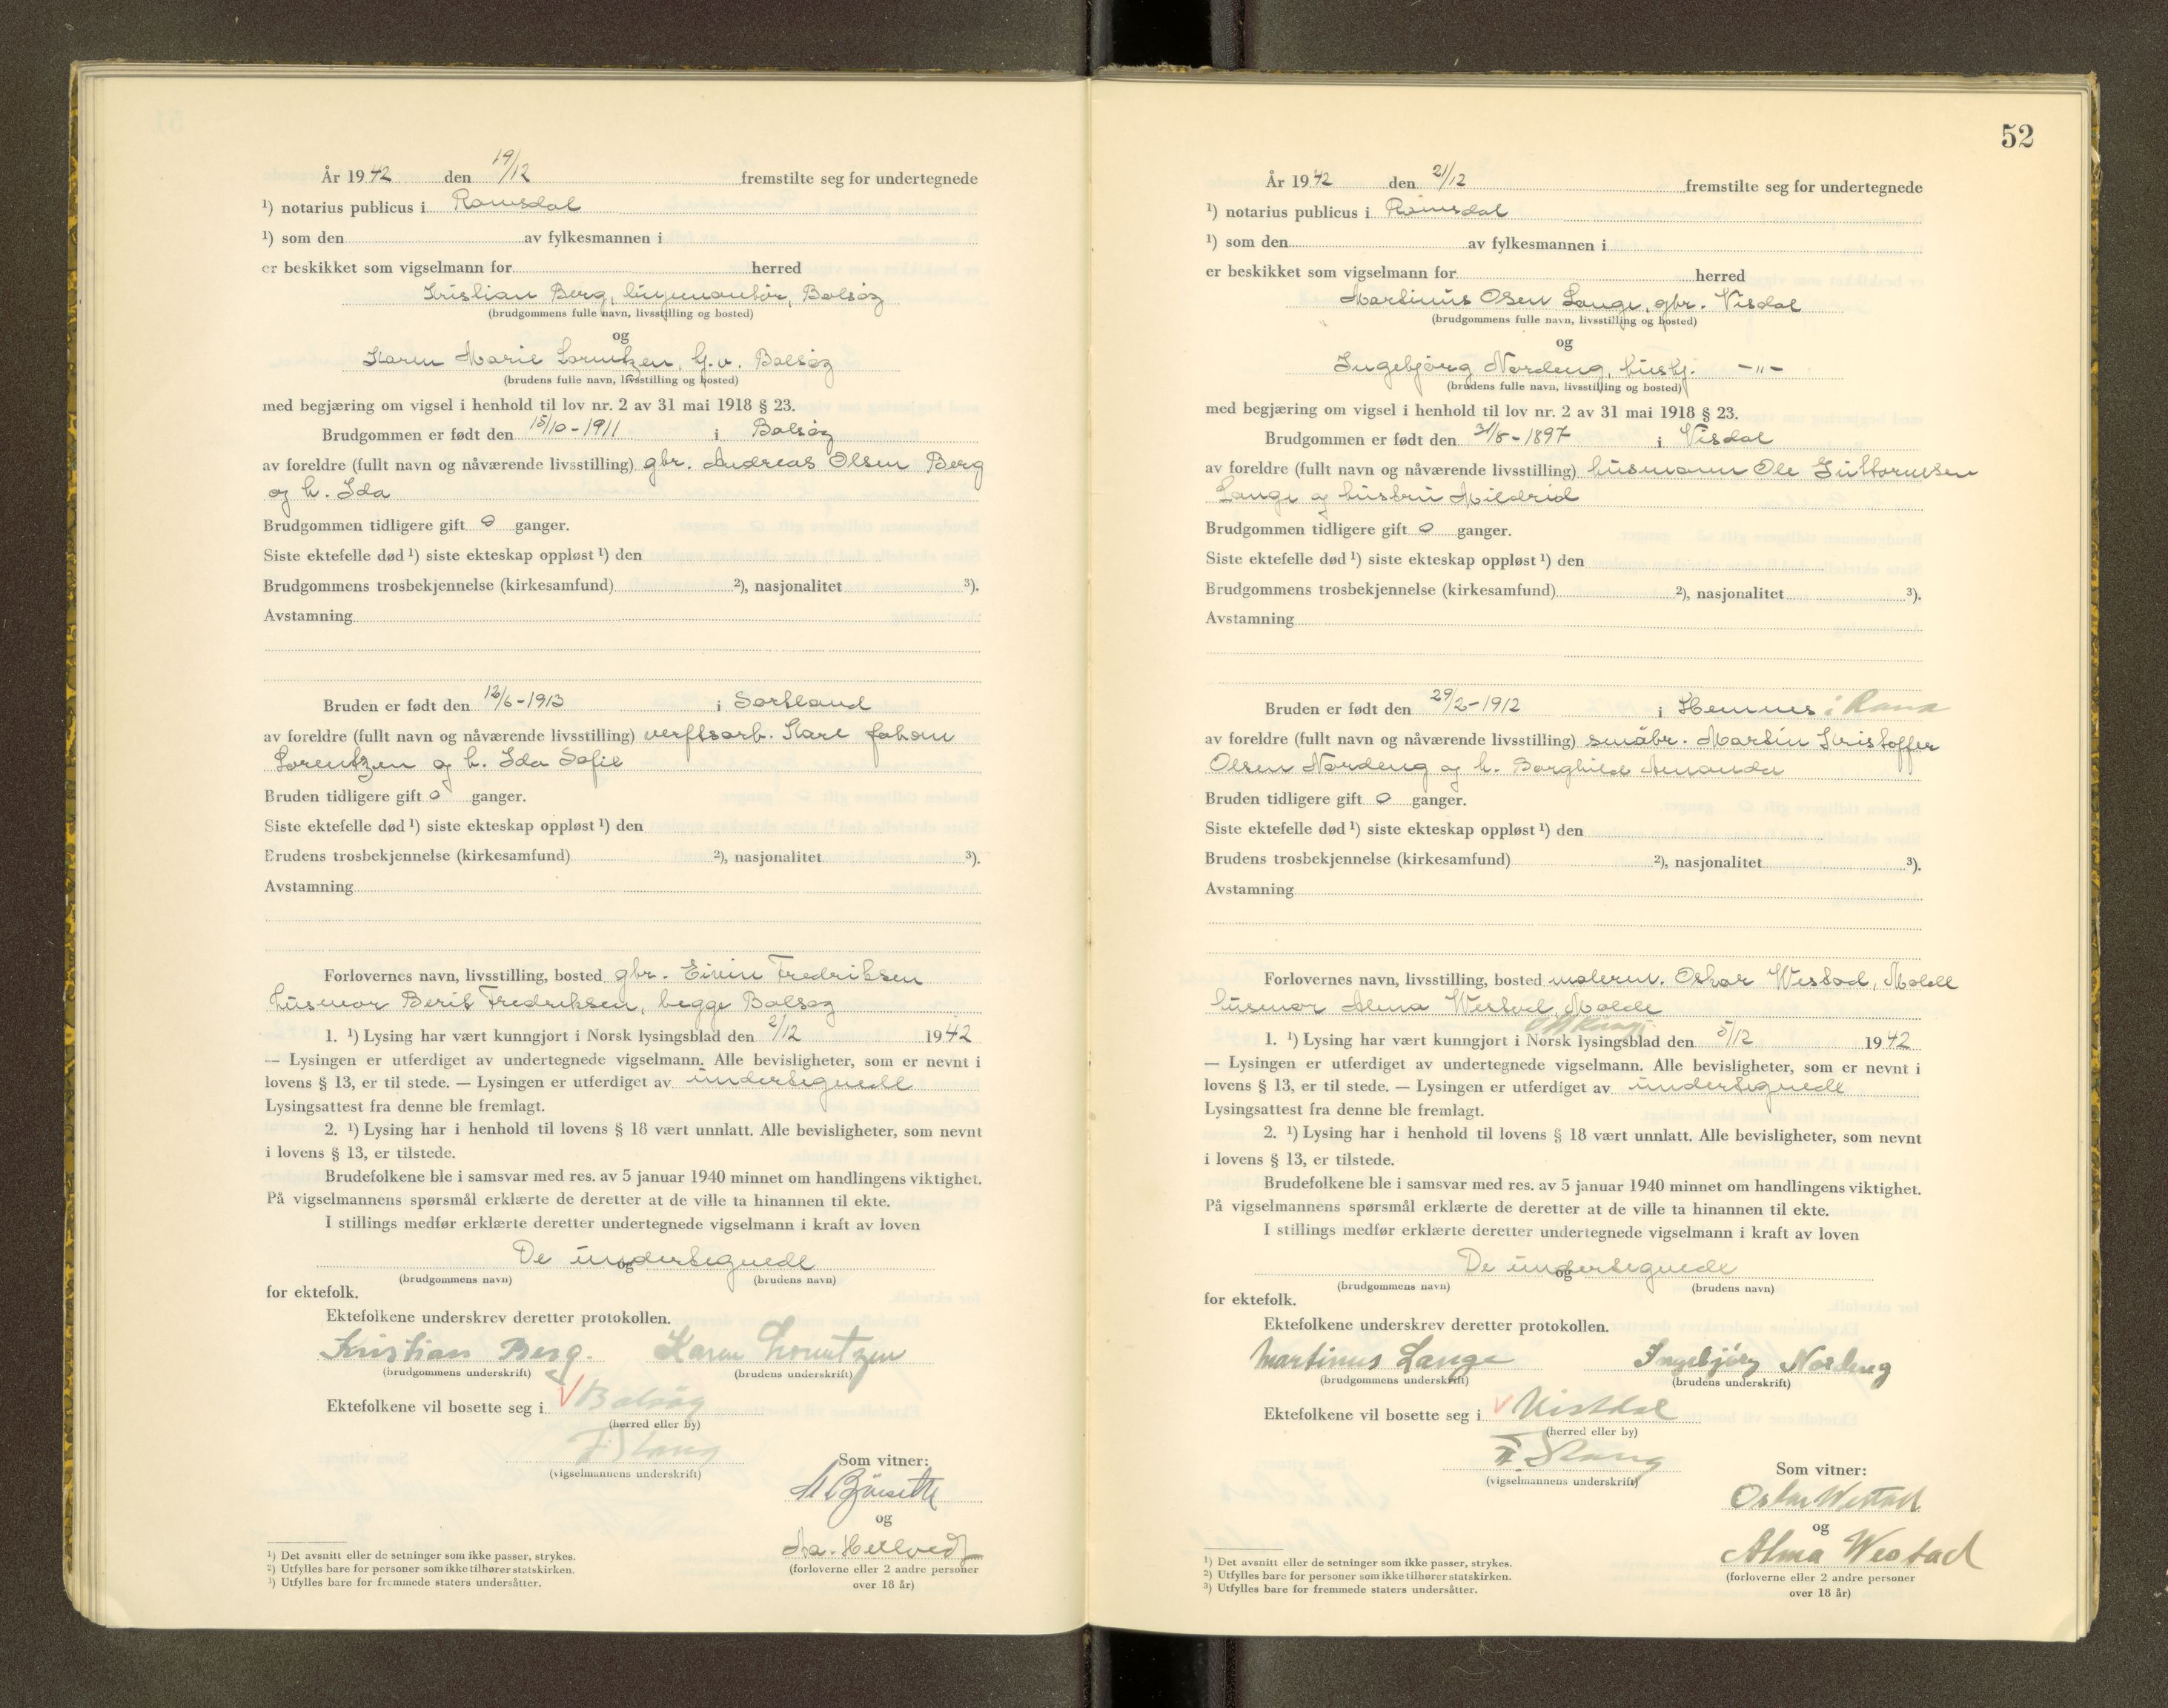 År 1942 den 19/12 fremstilte seg for undertegnede
¹) notarius publicus i Romsdal
¹) som den av fylkesmannen i
er beskikket som vigselmann for herred
Kristian Berg, Bolsøy
(brudgommens fulle navn, livsstilling og bosted)
og
Karen Marie Lorentzen, h.v. Bolsøy
(brudens fulle navn, livsstilling og bosted)
med begjæring om vigsel i henhold til lov nr. 2 av 31 mai 1918 § 23.
Brudgommen er født den 15/10-1911 i Bolsøy
av foreldre (fullt navn og nåværende livsstilling) gbr. Andreas Olsen Berg
og h. Ida
Brudgommen tidligere gift 0 ganger.
Siste ektefelle død ¹) siste ekteskap oppløst ¹) den
Brudgommens trosbekjennelse (kirkesamfund) ²), nasjonalitet ³).
Avstamning
Bruden er født den 12/6-1913 i Sortland
av foreldre (fullt navn og nåværende livsstilling) verftsarb. Karl Johan
Lorentzen og h. Ida Sofie
Bruden tidligere gift 0 ganger.
Siste ektefelle død ¹) siste ekteskap oppløst ¹) den
Brudens trosbekjennelse (kirkesamfund) ²), nasjonalitet ³).
Avstamning
Forlovernes navn, livsstilling, bosted gbr. Eivin Fredriksen
husmor Berit Fredriksen, begge Bolsøy
1. ¹) Lysing har vært kunngjort i Norsk lysingsblad den 2/12 1942
— Lysingen er utferdiget av undertegnede vigselmann. Alle bevisligheter, som er nevnt i
lovens § 13, er til stede. — Lysingen er utferdiget av undertegnede
Lysingsattest fra denne ble fremlagt.
2. ¹) Lysing har i henhold til lovens § 18 vært unnlatt. Alle bevisligheter, som nevnt
i lovens § 13, er tilstede.
Brudefolkene ble i samsvar med res. av 5 januar 1940 minnet om handlingens viktighet.
På vigselmannens spørsmål erklærte de deretter at de ville ta hinannen til ekte.
I stillings medfør erklærte deretter undertegnede vigselmann i kraft av loven
De undertegnede
og
(brudgommens navn) (brudens navn)
for ektefolk.
Ektefolkene underskrev deretter protokollen.
Kristian Berg. Karen Lorentzen
(brudgommens underskrift) (brudens underskrift)
Ektefolkene vil bosette seg i Bolsøy
(herred eller by)
F Stang
(vigselmannens underskrift)
Som vitner:
og
(forloverne eller 2 andre personer
over 18 år)
¹) Det avsnitt eller de setninger som ikke passer, strykes.
²) Utfylles bare for personer som ikke tilhører statskirken.
³) Utfylles bare for fremmede staters undersåtter.
52
År 1942 den 21/12 fremstilte seg for undertegnede
¹) notarius publicus i Romsdal
¹) som den av fylkesmannen i
er beskikket som vigselmann for herred
Martinus Osen Lange, gbr. Visdal
(brudgommens fulle navn, livsstilling og bosted)
og
Ingebjørg Nordeng, hushj. -"-
(brudens fulle navn, livsstilling og bosted)
med begjæring om vigsel i henhold til lov nr. 2 av 31 mai 1918 § 23.
Brudgommen er født den 31/8-1897 i Visdal
av foreldre (fullt navn og nåværende livsstilling) husmann Ole Guttormsen
Lange og hustru Mildrid
Brudgommen tidligere gift 0 ganger.
Siste ektefelle død ¹) siste ekteskap oppløst ¹) den
Brudgommens trosbekjennelse (kirkesamfund) ²), nasjonalitet ³).
Avstamning
Bruden er født den 29/2-1912 i Hemnes i Rana
av foreldre (fullt navn og nåværende livsstilling) småbr. Martin Kristoffer
Olsen Nordeng og h. Borghild Amanda
Bruden tidligere gift 0 ganger.
Siste ektefelle død ¹) siste ekteskap oppløst ¹) den
Brudens trosbekjennelse (kirkesamfund) ²), nasjonalitet ³).
Avstamning
Forlovernes navn, livsstilling, bosted malerm. Oskar Westad, Molde
husmor Alma Westad, Molde
1. ¹) Lysing har vært kunngjort i Norsk lysingsblad den 5/12 1942
— Lysingen er utferdiget av undertegnede vigselmann. Alle bevisligheter, som er nevnt i
lovens § 13, er til stede. — Lysingen er utferdiget av undertegnede
Lysingsattest fra denne ble fremlagt.
2. ¹) Lysing har i henhold til lovens § 18 vært unnlatt. Alle bevisligheter, som nevnt
i lovens § 13, er tilstede.
Brudefolkene ble i samsvar med res. av 5 januar 1940 minnet om handlingens viktighet.
På vigselmannens spørsmål erklærte de deretter at de ville ta hinannen til ekte.
I stillings medfør erklærte deretter undertegnede vigselmann i kraft av loven
De undertegnede
og
(brudgommens navn) (brudens navn)
for ektefolk.
Ektefolkene underskrev deretter protokollen.
Martinus Lange Ingebjørg Nordeng
(brudgommens underskrift) (brudens underskrift)
Ektefolkene vil bosette seg i Vistdal
(herred eller by)
F. Stang
(vigselmannens underskrift)
Som vitner:
Oskar Westad
og
Alma Westad
(forloverne eller 2 andre personer
over 18 år)
¹) Det avsnitt eller de setninger som ikke passer, strykes.
²) Utfylles bare for personer som ikke tilhører statskirken.
³) Utfylles bare for fremmede staters undersåtter.